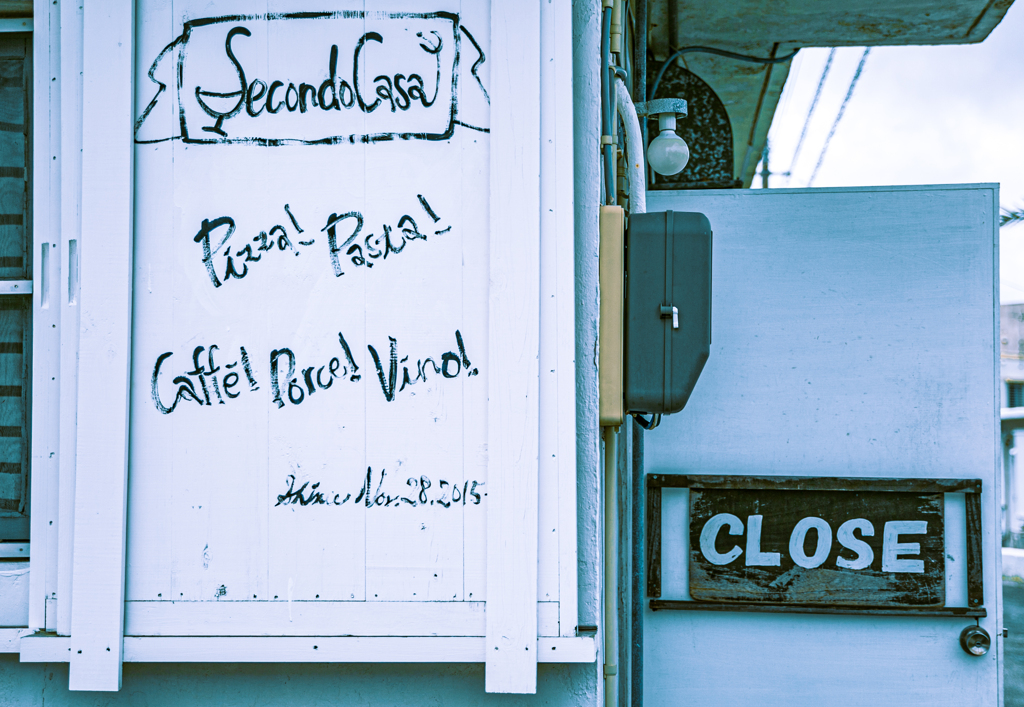 SecondoCasa
Pizza! Pasta!
Caffē! Porce! Vino!
Nov. 28. 2015
CLOSE